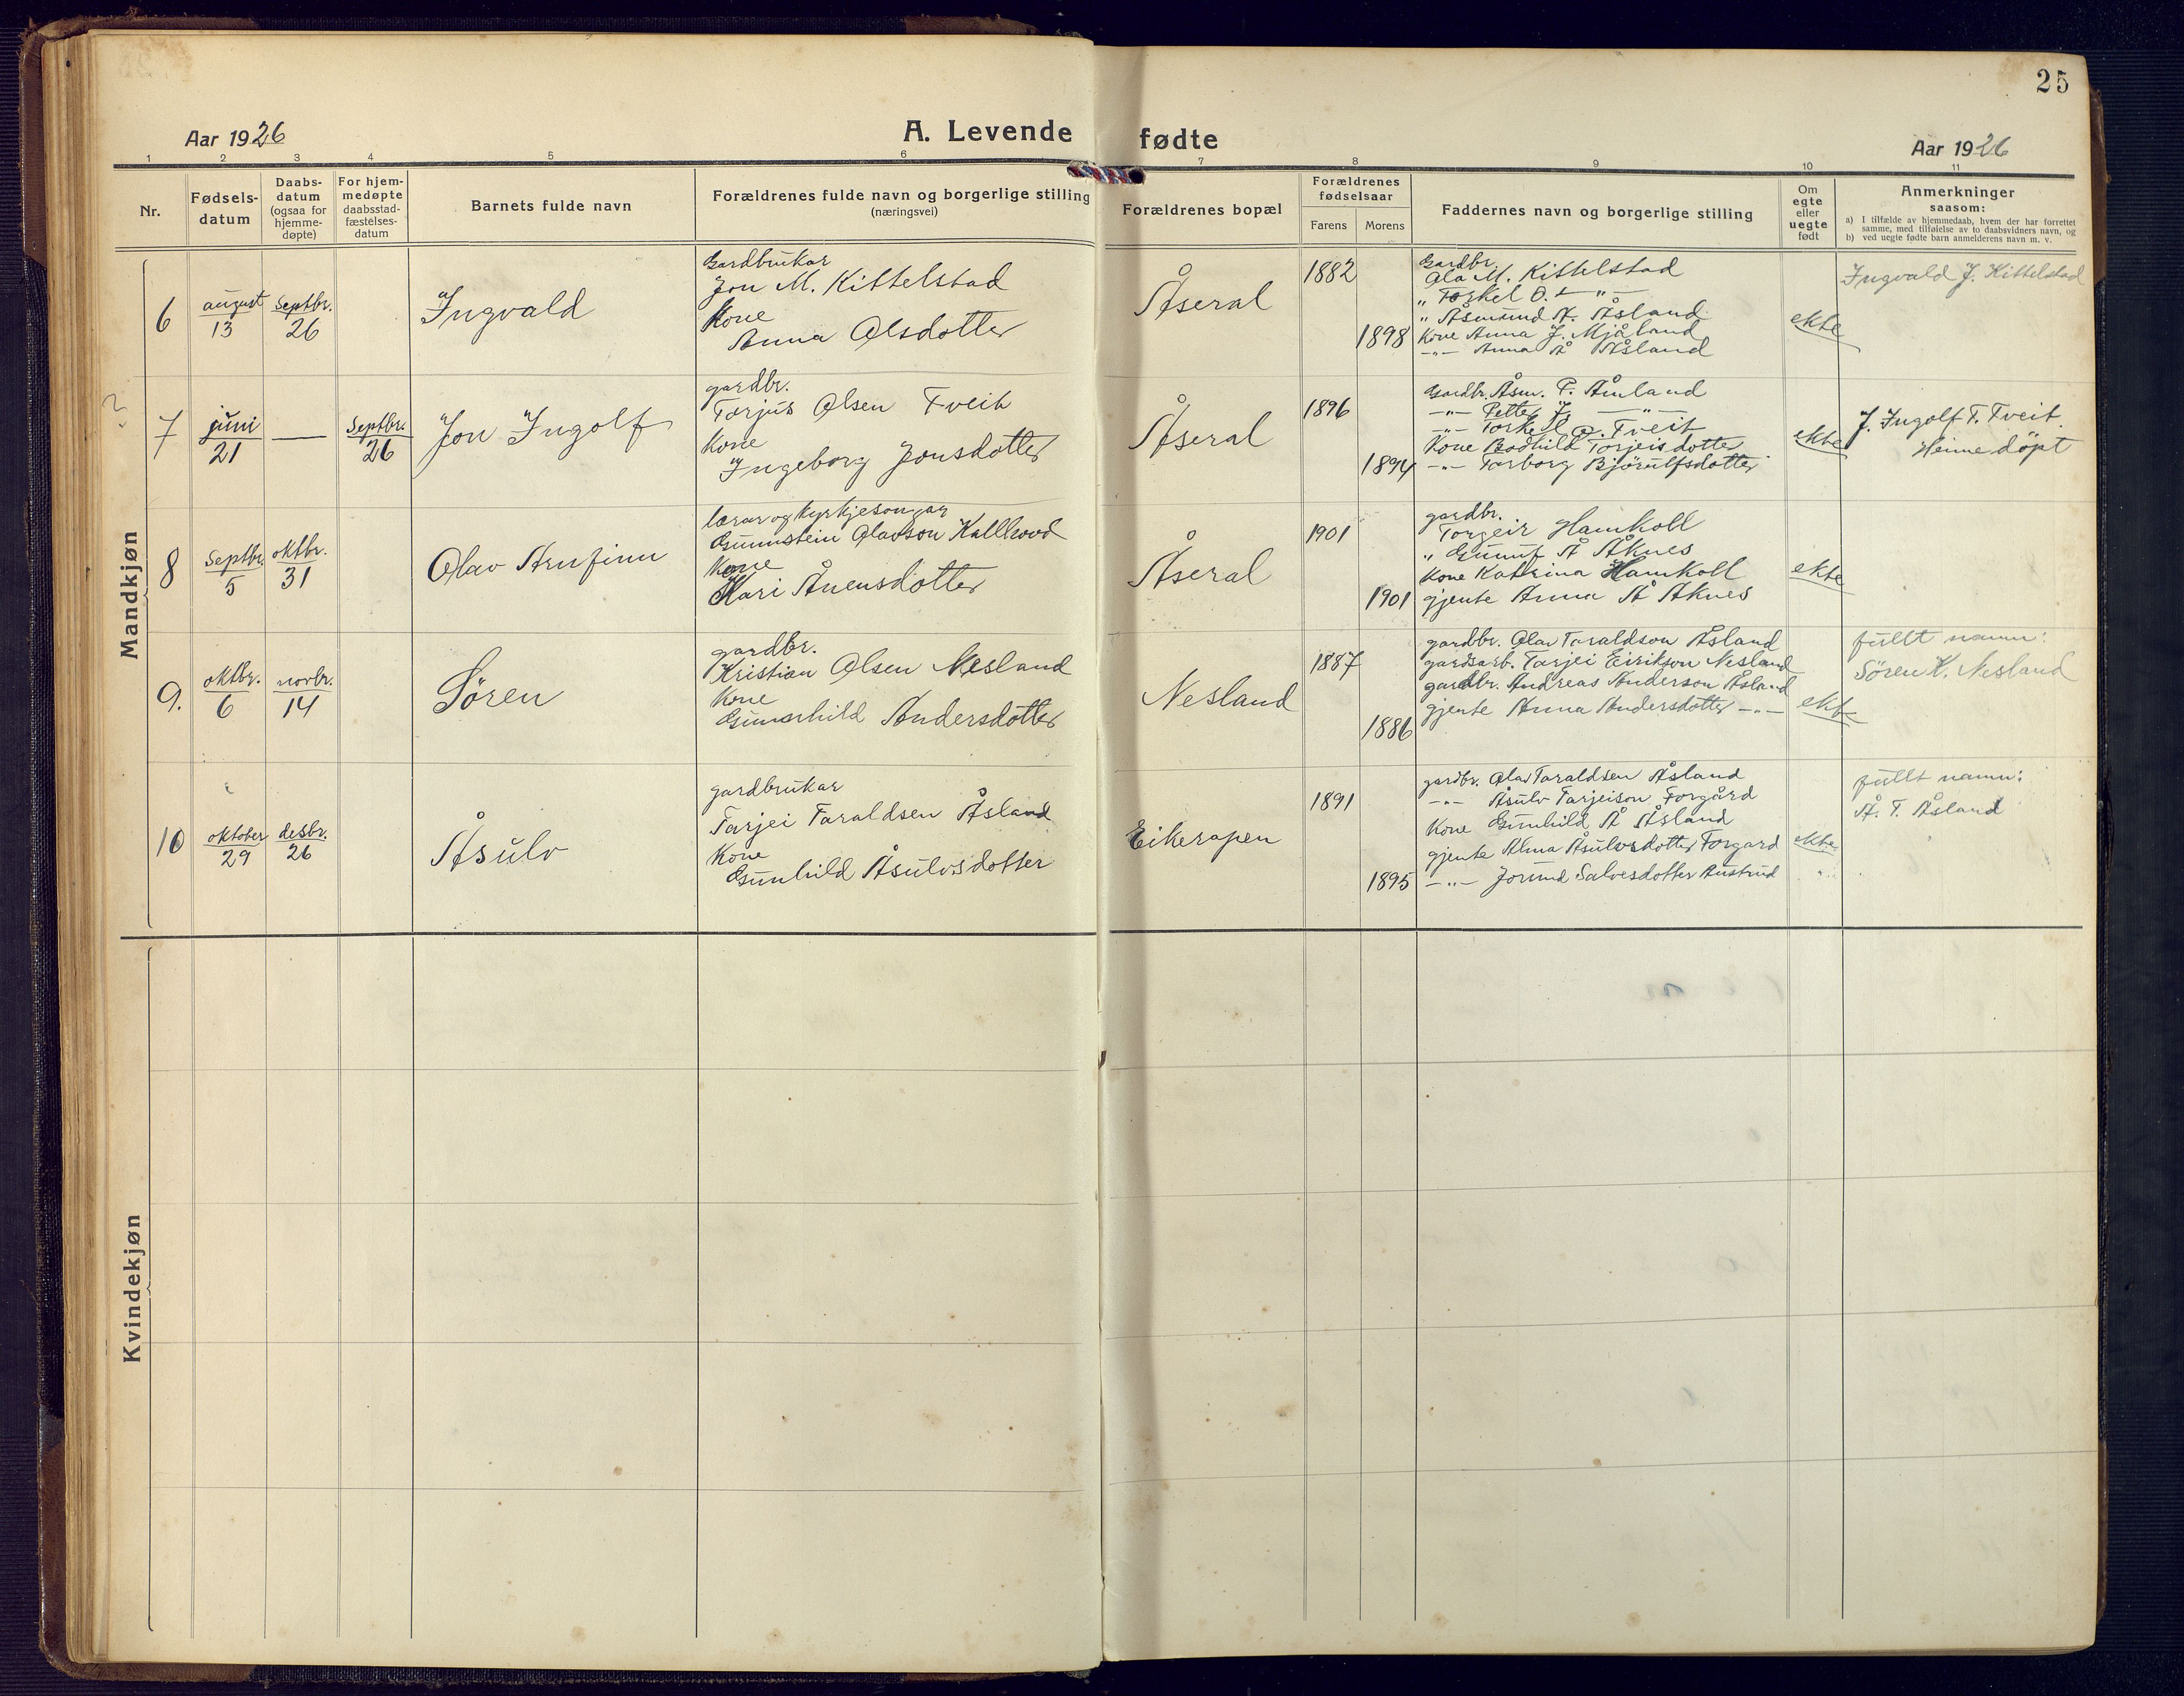 25
Aar 1926
A. Levende fødte
Aar 1926
1 2 3 4 5 6 7 8 9 10 11
Nr.
Fødsels-
datum
Daabs-
datum
(ogsaa for
hjemme-
døpte)
For hjem-
medøpte
daabsstad-
fæstelses-
datum
Barnets fulde navn
Forældrenes fulde navn og borgerlige stilling
(næringsvei)
Forældrenes bopæl
Forældrenes
fødselsaar
Farens Morens
Faddernes navn og borgerlige stilling
Om
egte
eller
uegte
født
Anmerkninger
saasom:
a) I tilfælde av hjemmedaab, hvem der har forrettet
samme, med tilføielse av to daabsvidners navn, og
b) ved uegte fødte barn anmelderens navn m. v.
Mandkjøn
6
august
13
Septbr.
26
Ingvald
Gardbrukar
Jon M. Kittelstad
Kone
Anna Olsdotter
Åseral
1882
1898
Gardbr.
Ola M. Kittelstad
" Torkel O. — " —
" Åsmund A. Åsland
Kone Anna J. Mjåland
—"— Anna Å Åsland
ekte
Ingvald J. Kittelstad
?
7
juni
21
—
Septbr.
26
Jon Ingolf
gardbr.
Torjus Olsen Tveit
Kone
Ingeborg Jonsdotter
Åseral
1896
1894
Gardbr. Åsm. P. Åmland
—"— Petter J. —"—
—"— Torkell O. Tveit
Kone Bodhild Torjeisdotter
—"— Torborg Bjørulfsdotter
ekte
J. Ingolf T. Tveit.
Heime döpt
8
Septbr.
5
oktbr.
31
Olav Arnfinn
lærar og kyrkjesongar
Gunnstein Olavson Kallhovd
Kone
Kari Ånensdotter
Åseral
1901
1901
gardbr.
Torgeir Hamkoll
" Gunnuf Å Åknes
Kone Katrina Hamkoll
gjente Anna Å Åknes
ekte
9.
oktbr.
6
novbr.
14
Sören
gardbr.
Kristian Olsen Nesland
Kone
Gunnhild Andersdotter
Nesland
1887
1886
gardbr. Olav Taraldson Åsland
gardsarb. Tarjei Eirikson Nesland
gardbr. Andreas Anderson Åsland
gjente Anna Andersdotter —"—
ekte
fullt namn:
Sören K. Nesland
10
oktober
29
desbr.
26
Åsulv
gardbrukar
Tarjei Taraldsen Åsland
Kone
Gunhild Åsulvsdotter
Eikerapen
1891
1895
gardbr. Olav Taraldsen Åsland
—"— Åsulv Tarjeison Forgård
Kone Gunhild Å Åsland
gjente Alma Åsulvsdotter Forgard
—"— Jorund Salvesdotter Austrud
ekte
fullt namn:
Å. T. Åsland
Kvindekjøn